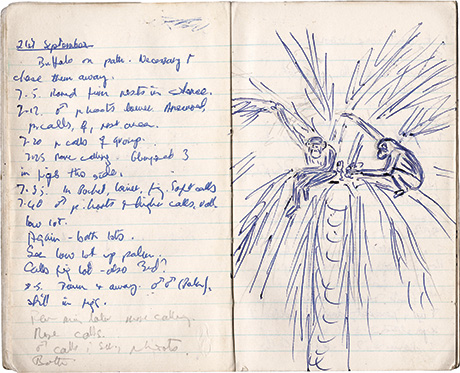 21st September
Buffalo on path. Necessary to
close them away.
7-5. Round from nests in
7-12. ♂ p. hoots lower. Answered
p. calls, of, nest area.
7-20 p calls of group.
7-25 more calling. Glimpsed 3
in figs this side.
7-35. In Pocket, lower, fig. Soft calls
7-40 ♂ p. hoots & higher calls, both
low lot.
Again - both lots.
See low lot up palm.
Calls fig lot - also 3rd?
8-5. Down & away. ♂♂ (Palm),
still in figs.
min later more calling.
More calls.
♂ calls, p. hoots.
Both